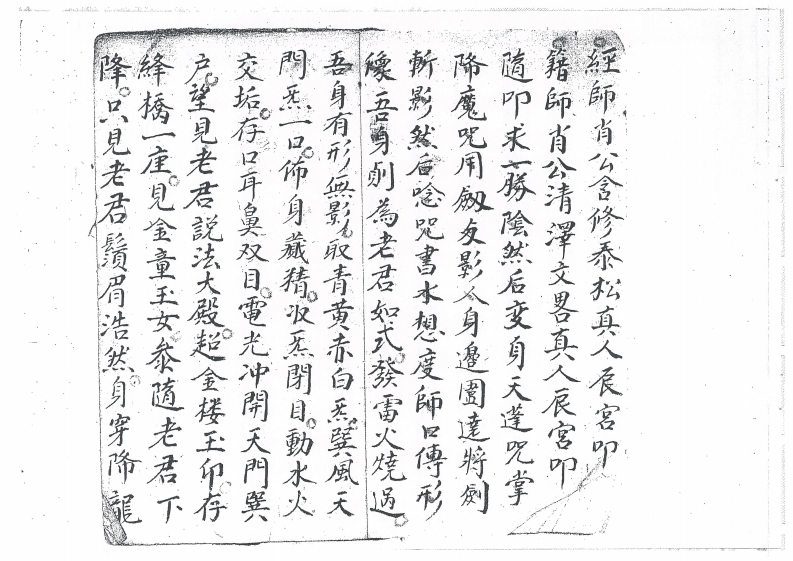 經師肖公含修泰松真人辰宮叩
籍師肖公清澤文畧真人辰宮叩
隨叩求一勝陰然后变身天蓬咒掌
降魔咒用劔友影人身邉圍達將劍
斬影然后唸咒書水想度師口傳形
像吾身則為老君如式發雷火燒過
吾身有形無影取青黄赤白炁巽風天
門炁一口佈身藏精收炁閉目動水火
交垢存口耳鼻双目電光冲開天門巽
户望見老君説法大殿起金楼玉卯存
絳橋一座見金童玉女叅隨老君下
降只見老君鬚眉浩然身穿降龍